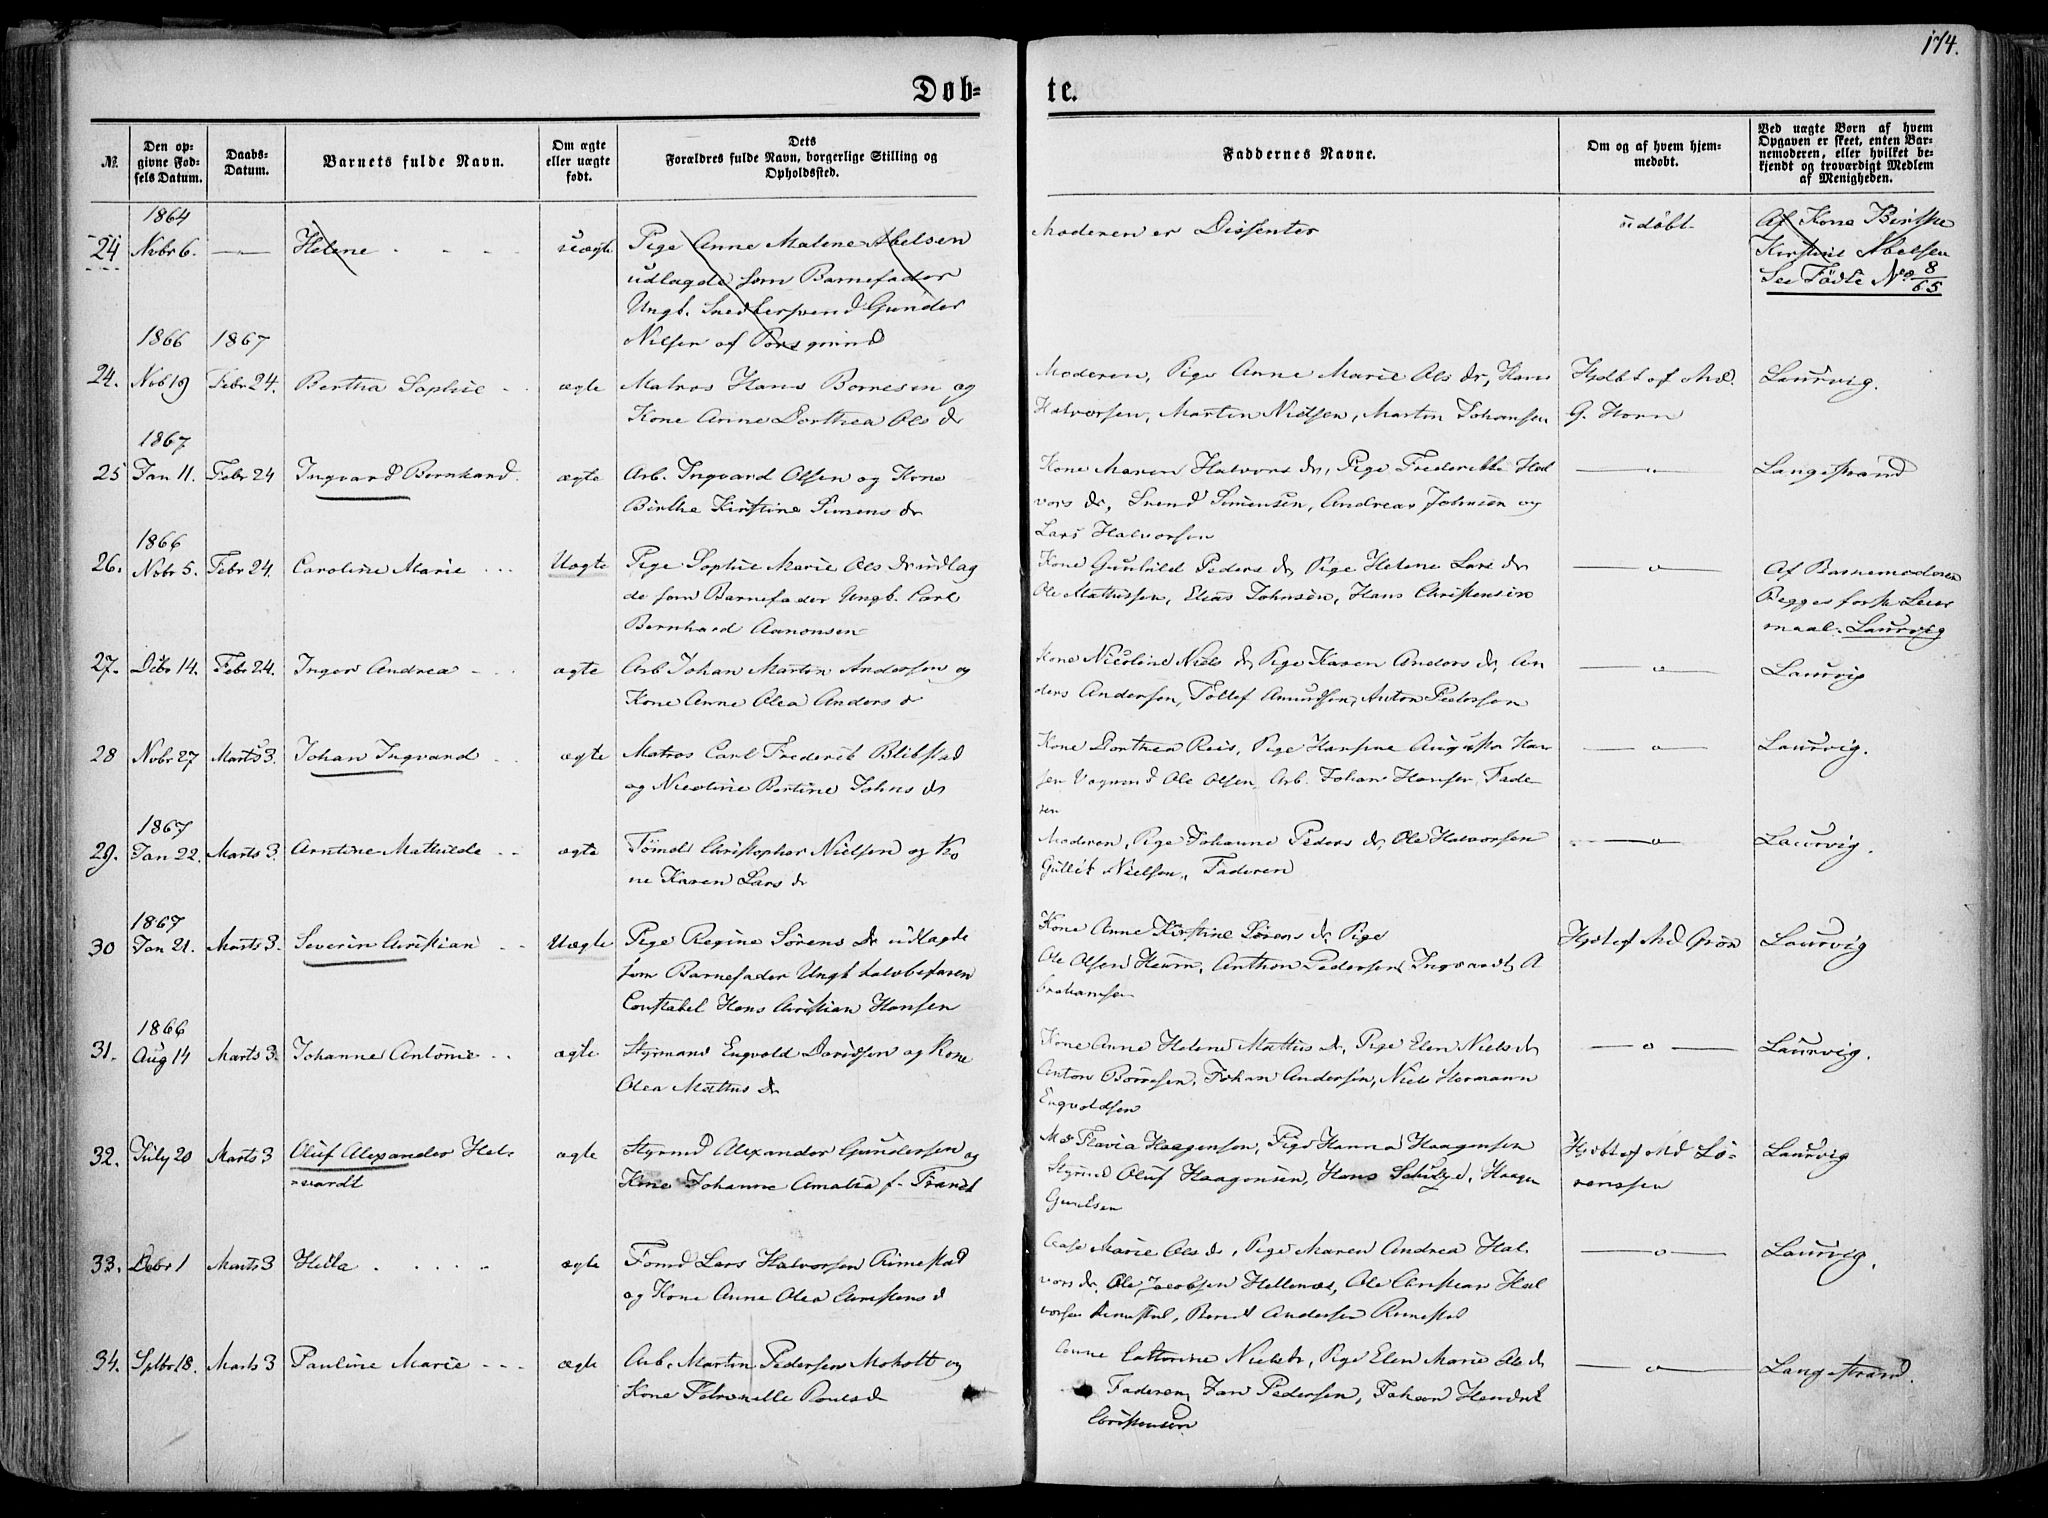 174.
Døb-
te.
№
Den op-
givne Fød-
sels Datum.
Daabs-
Datum.
Barnets fulde Navn.
Om ægte
eller uægte
født.
Dets
Forældres fulde Navn, borgerlige Stilling og
Opholdssted.
Faddernes Navne.
Om og af hvem hjem-
medøbt.
Ved uægte Børn af hvem
Opgaven er skeet, enten Bar-
nemoderen, eller hvilket be-
kjendt og troværdigt Medlem
af Menigheden.
1864
24 Nvbr 6. — Helene uægte
Pige Anne Malene Abelsen
udlagde som Barnefader
Ungk. Snedkersvend Gunder
Nilsen af Porsgrund
Moderen er Dissenter
udøbt
Af Kone Birthe
Kirstine Abelsen
See Fødte No 8/65
1866 1867
24. Nvb 19 Febr 24. Bertha Sophie ægte
Matros Hans Borresen og
Kone Anne Dorthea Ols dr
Moderen, Pige Anne Marie Ols dr, Hans
Halvorsen, Martin Nielsen, Martin Johansen
Hjdbt af Md.
G. Horn
Laurvig.
1867
25 Jan 11. Febr 24 Ingvard Bernhard. ægte
Arb. Ingvard Olsen og Kone
Birthe Kirstine Simens dr
Kone Maren Halvors dr, Pige Frederikke Hal
vors dr, Svend Simensen, Andreas Johnsen og
Lars Halvorsen
— " —
Langestrand
1866
26. Nvbr 5. Febr 24. Caroline Marie Uægte
Pige Sophie Marie Ols Dr udlag
de som Barnefader Ungk. Carl
Bernhard Aanonsen
Kone Gunhild Peders dr, Pige Helene Lars dr
Ole Mathissen, Elias Johnsen, Hans Christensen
— " —
Af Barnemoderen
Begges første Leier
maal. Laurvig
27. Dcbr 14. Febr 24. Inger Andrea ægte
Arb Johan Martin Andersen og
Kone Anne Olea Anders d
Kone Nicoline Niels dr, Pige Karen Anders dr, An
ders Andersen, Tollef Amundsen, Anton Pedersen
— " —
Laurvig
28 Nvbr 27 Marts 3. Johan Ingvard ægte
Matros Carl Frederik Blikstad
og Nicoline Bertine Johns dr
Kone Dorthea Reis, Pige Hansine Augusta Han
sen Vognmd Ole Olsen, Arb. Johan Hansen, Fade
ren
— " —
Laurvig.
1867
29. Jan 22. Marts 3. Arntine Mathilde ægte
Tømd Christopher Nielsen og Ko
ne Karen Lars dr
Moderen, Pige Johanne Peders dr, Ole Halvorsen
Gullik Nielsen, Faderen
— " —
Laurvig.
1867
30 Jan 21. Marts 3. Severin Christian Uægte
Pige Regine Sørens Dr udlagde
som Barnefader Ungk halvbefaren
Constabel Hans Christian Hansen
Kone Anne Kirstine Sørens dr, Pige
Ole Olsen Heum, Anthon Pedersen, Ingvardt A
brahamsen
Hjdbt af Md Grøn
Laurvig
1866
31. Aug 14 Marts 3. Johanne Antonie ægte
Styrmand Engvold Davidsen og Kone
Olea Mathis dr
Kone Anne Helene Mathis dr, Pige Elen Niels dr
Anton Børresen, Johan Andersen, Niels Hermann
Engvoldsen
— " —
Laurvig.
32. July 20 Marts 3 Oluf Alexander Hel-
vardt
ægte
Styrmd Alexander Gundersen og
Kone Johanne Amalia f. Frantz
Md Flavia Haagensen, Pige Hanna Haagensen
Styrmd Oluf Haagensen, Hans Schulze, Haagen
Gundsen
Hjdbt af Md Lo-
renssen
Laurvig
33. Dcbr 1 Marts 3 Hilla ægte
Tømd Lars Halvorsen Rimestad
og Kone Anne Olea Christens d
Marie Ols dr, Pige Maren Andrea Hal
vors dr, Ole Jacobsen Hellenæs, Ole Christian Hal
vorsen Rimestad, Bernt Andersen Rimestad
— " —
Laurvig.
34. Sptbr 18. Marts 3 Pauline Marie ægte
Arb. Martin Pedersen Moholt og
Kone Petronelle Pouls d
Anne Cathrine Niels dr, Pige Elen Marie Ols dr
Faderen, Jan Pedersen, Johan Hendrik
Christensen
— " —
Langestrand.